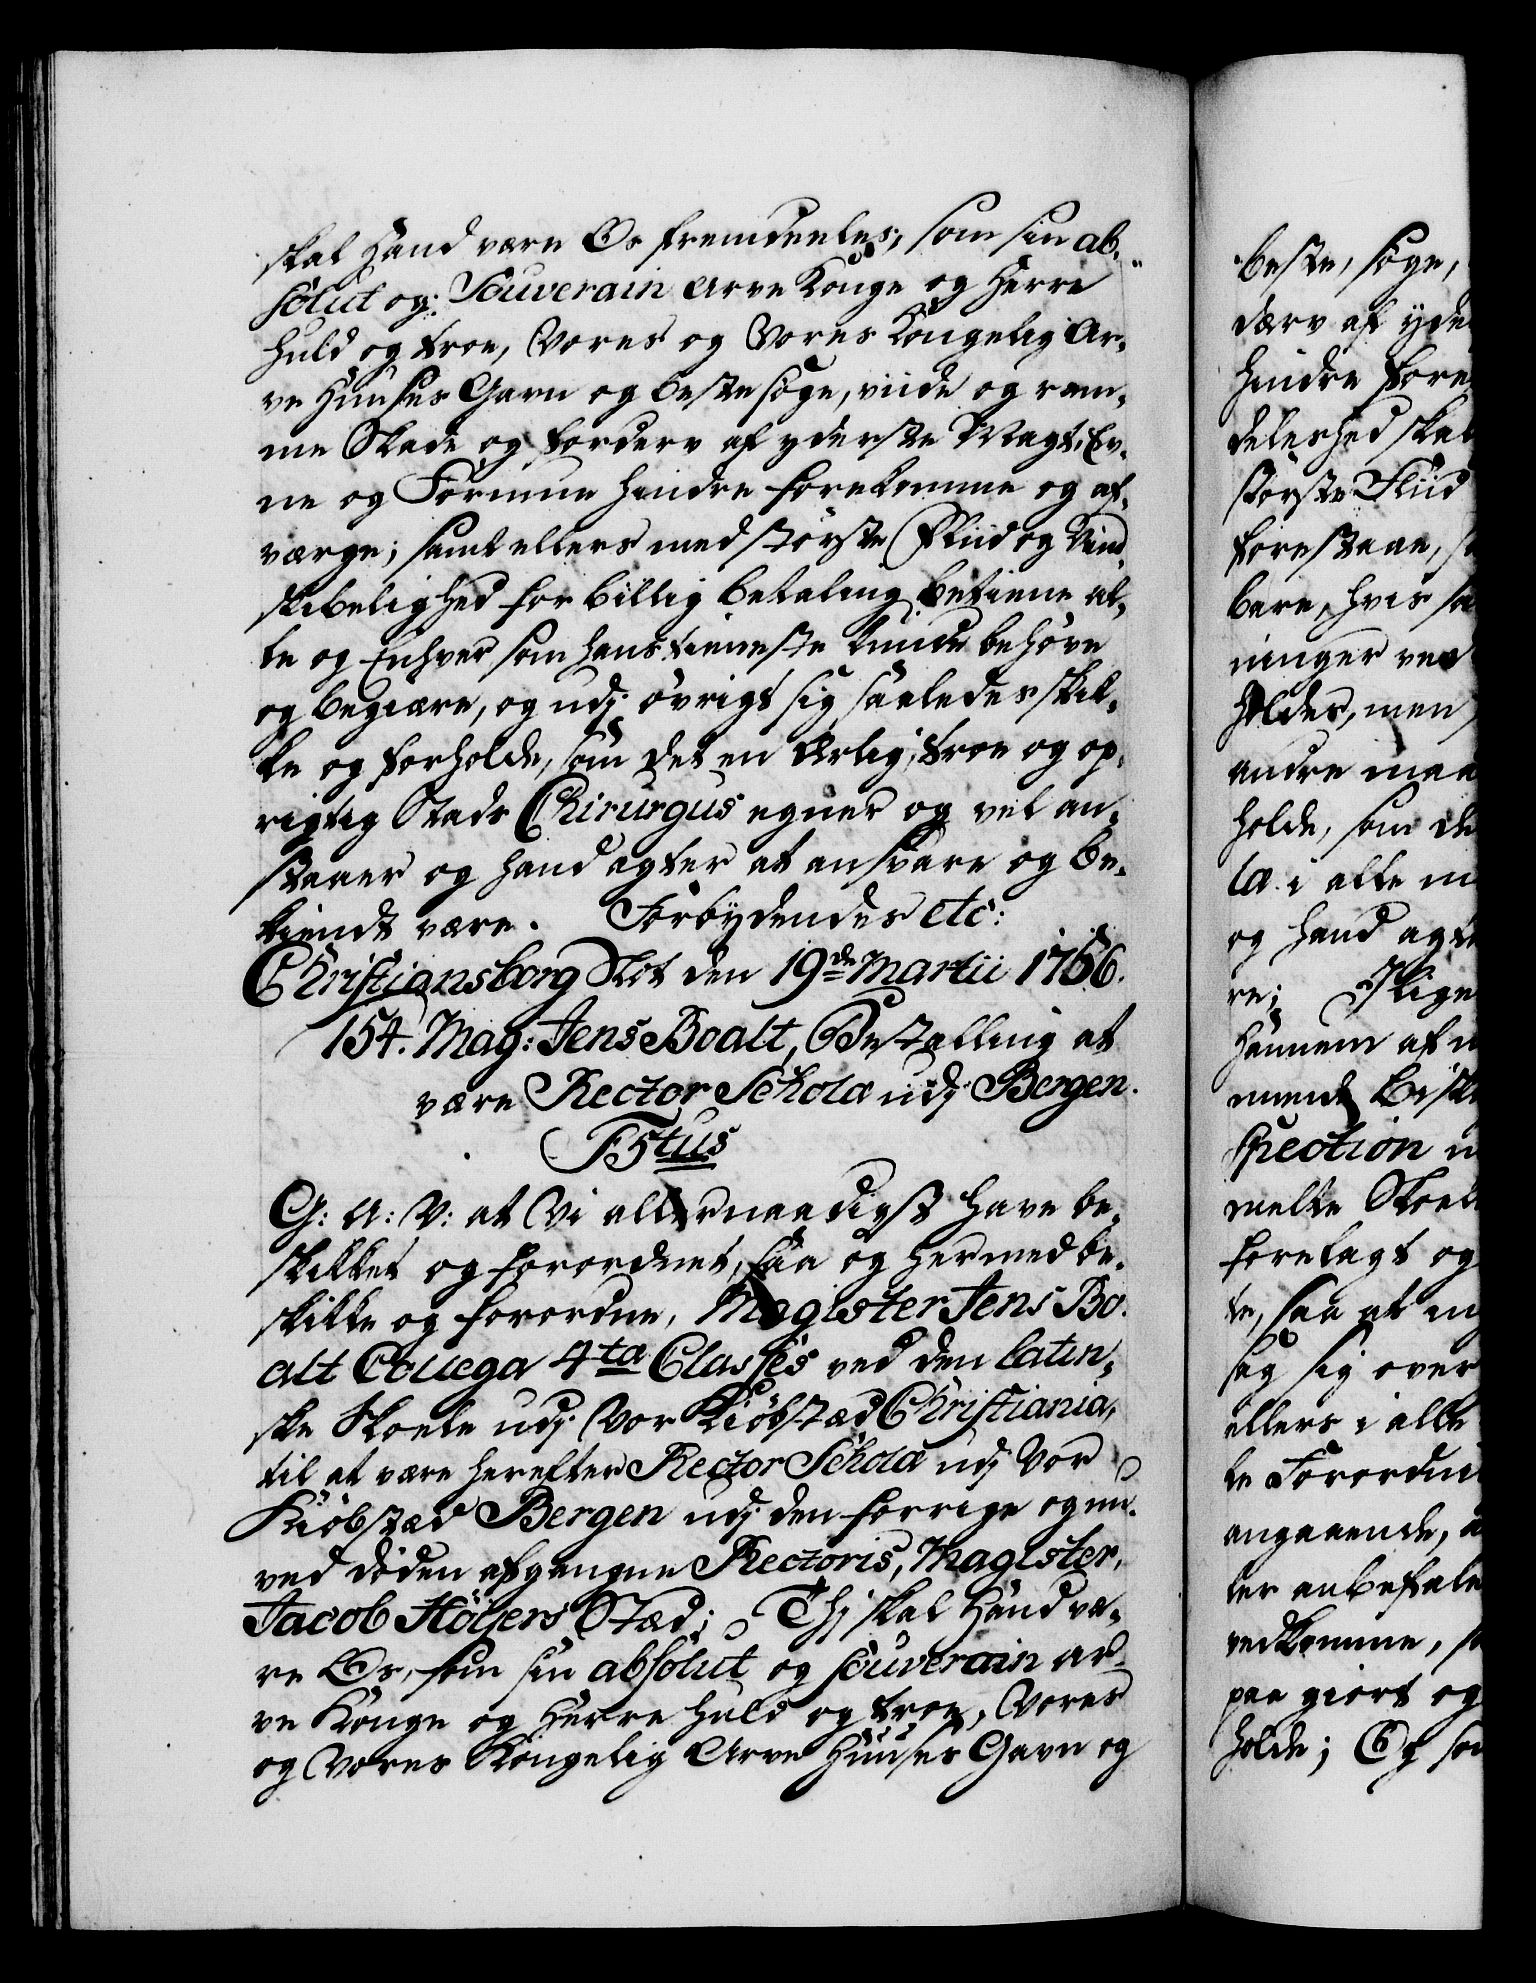 skal Hand være Os fremdeeles, som sin ab-
solut og Souverain Arve Konge og Herre
huld og troe, Vores og Vores Kongelig Ar-
ve Huuses Gavn og beste søge, viide og ram-
me Skade og forderv af yderste Magt, Ev-
ne og Formue hindre forekomme og af-
værge; samt ellers med største Fliid og Vind-
skibelighed for billig betaling betiene al-
le og Enhver som hans tieneste kunde behøve
og begiære, og udj øvrigt sig saaledes skik-
ke og forholde, som det en Ærlig, troe og op-
rigtig Stads Chirurgus egner og vel an-
staaer og hand agter at ansvare og be-
kiendt være. Forbydendes etc:
Christiansborg Slot den 19de Martii 1766.
154. Mag: Jens Boalt, Bestalling at
være Rector Scholæ udj Bergen.
F5tus
G: A: V: at Vi allernaadigst have be-
skikket og forordnet, saa og hermed be-
skikke og forordne, Magister Jens Bo-
alt Collega 4ta Classes ved den latin-
ske Skoele udj Vor Kiøbstæd Christiania,
til at være herefter Rector Scholæ udj Vor
Kiøbstæd Bergen udj den forrige og nu
ved døden afgangne Rectoris, Magister,
Jacob Høyers Stæd; Thj skal Hand væ-
re Os, som sin absolut og souverain ar-
ve Konge og Herre huld og troe, Vores
og Vores Kongelig Arve Huuses Gavn og
beste, søge,
derv af yde
hindre fore
deleshed skal
største Fliid
forestaae, s
bare, hvis sa
ninger ved
holdes, men
andre maa
holde, som de
la i alle m
og hand agte
re; Slige
Hannem af n
mende Bisk
spection u
melte Skoel
forelagt og
te, saa at in
sag sig over
ellers i alle
le Forordni
angaaende, a
ler anbefale
vedkomme, so
paa giort og
holde; Og som